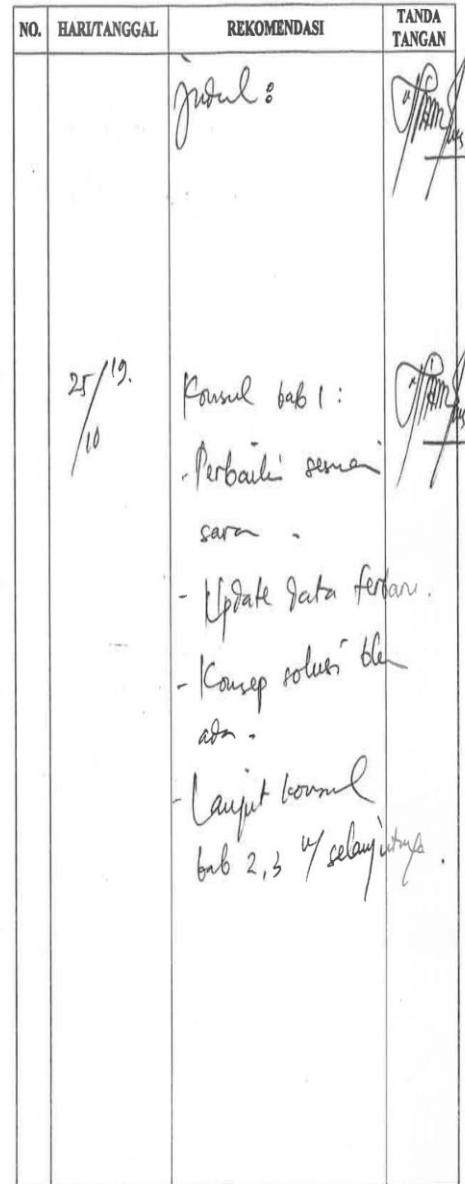 NO. HARI/TANGGAL REKOMENDASI TANDA TANGAN
judul :
25/10 19.
Konsul bab 1 :
- Perbaiki sesuai
saran .
- Update data terbaru.
- Konsep solusi blm
ada .
- Lanjut konsul
bab 2,3 u/ selanjutnya .